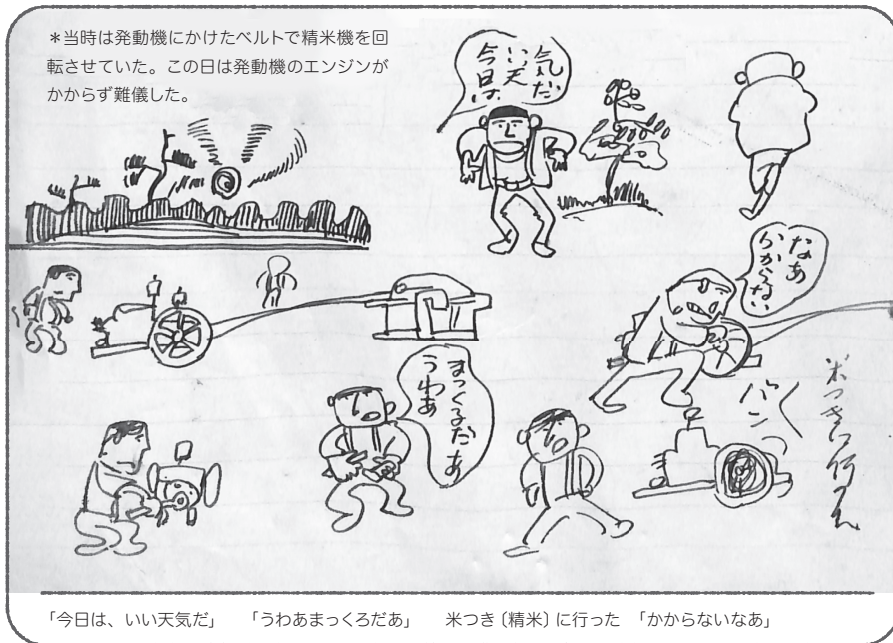 *当時は発動機にかけたベルトで精米機を回
転させていた。この日は発動機のエンジンが
かからず難儀した。
今日は
いい天
気だ
かからない
なあ
うわあ
まっくろだあ
バン
米つきに行った
「今日は、いい天気だ」 「うわあまっくろだあ」 米つき〔精米〕に行った 「かからないなあ」